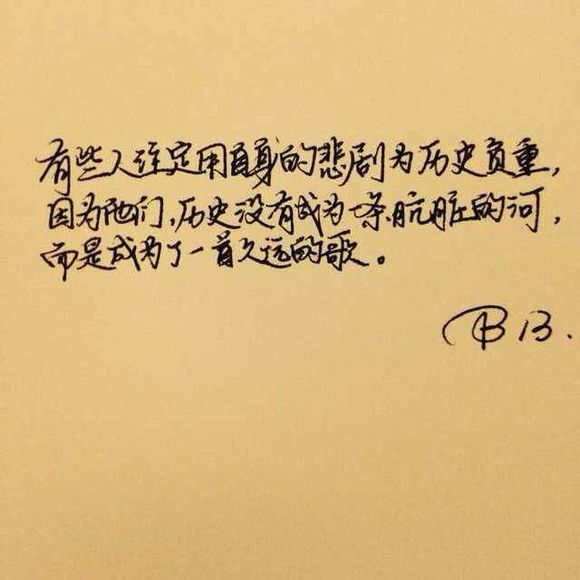 有些人注定用自身的悲剧为历史负重，
因为他们，历史没有成为一条肮脏的河，
而是成为了一首久远的歌。
B 13.